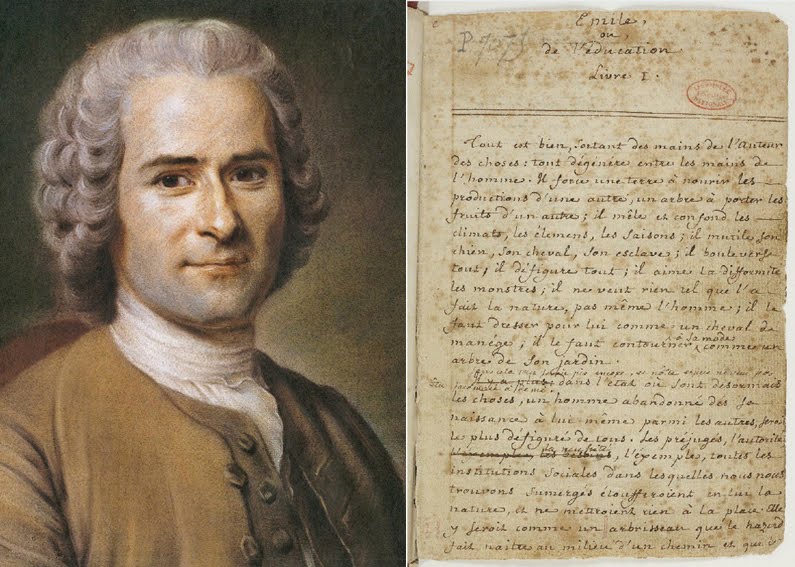 Emile,
ou
de l'éducation
Livre I.
Tout est bien, sortant des mains de l'Auteur
des choses: tout dégénére entre les mains de
l'homme. Il force une terre à nourir les
productions d'une autre, un arbre à porter les
fruits d'un autre; il mêle et confond les
climats, les élemens, les saisons; il mutile son
chien, son cheval, son esclave; il bouleverse
tout, il défigure tout; il aime la difformité
les monstres; il ne veut rien tel que l'a
fait la nature, pas même l'homme; il le
faut dresser pour lui comme un cheval de
manége; il le faut contourner à sa mode comme un
arbre de son jardin.
dans l'état où sont desormais
les choses, un homme abandonné dès sa
naissance à lui même parmi les autres, sera
le plus défiguré de tous. Les préjugés, l'autorité
la necessité
l'exemple, les besoins, l'exemple, toutes les
institutions sociales dans lesquelles nous nous
trouvons sumergés étoufferoient en lui la
nature, et ne mettroient rien à la place. Elle
y seroit comme un arbrisseau que le hazard
fait naitre au milieu d'un chemin et que